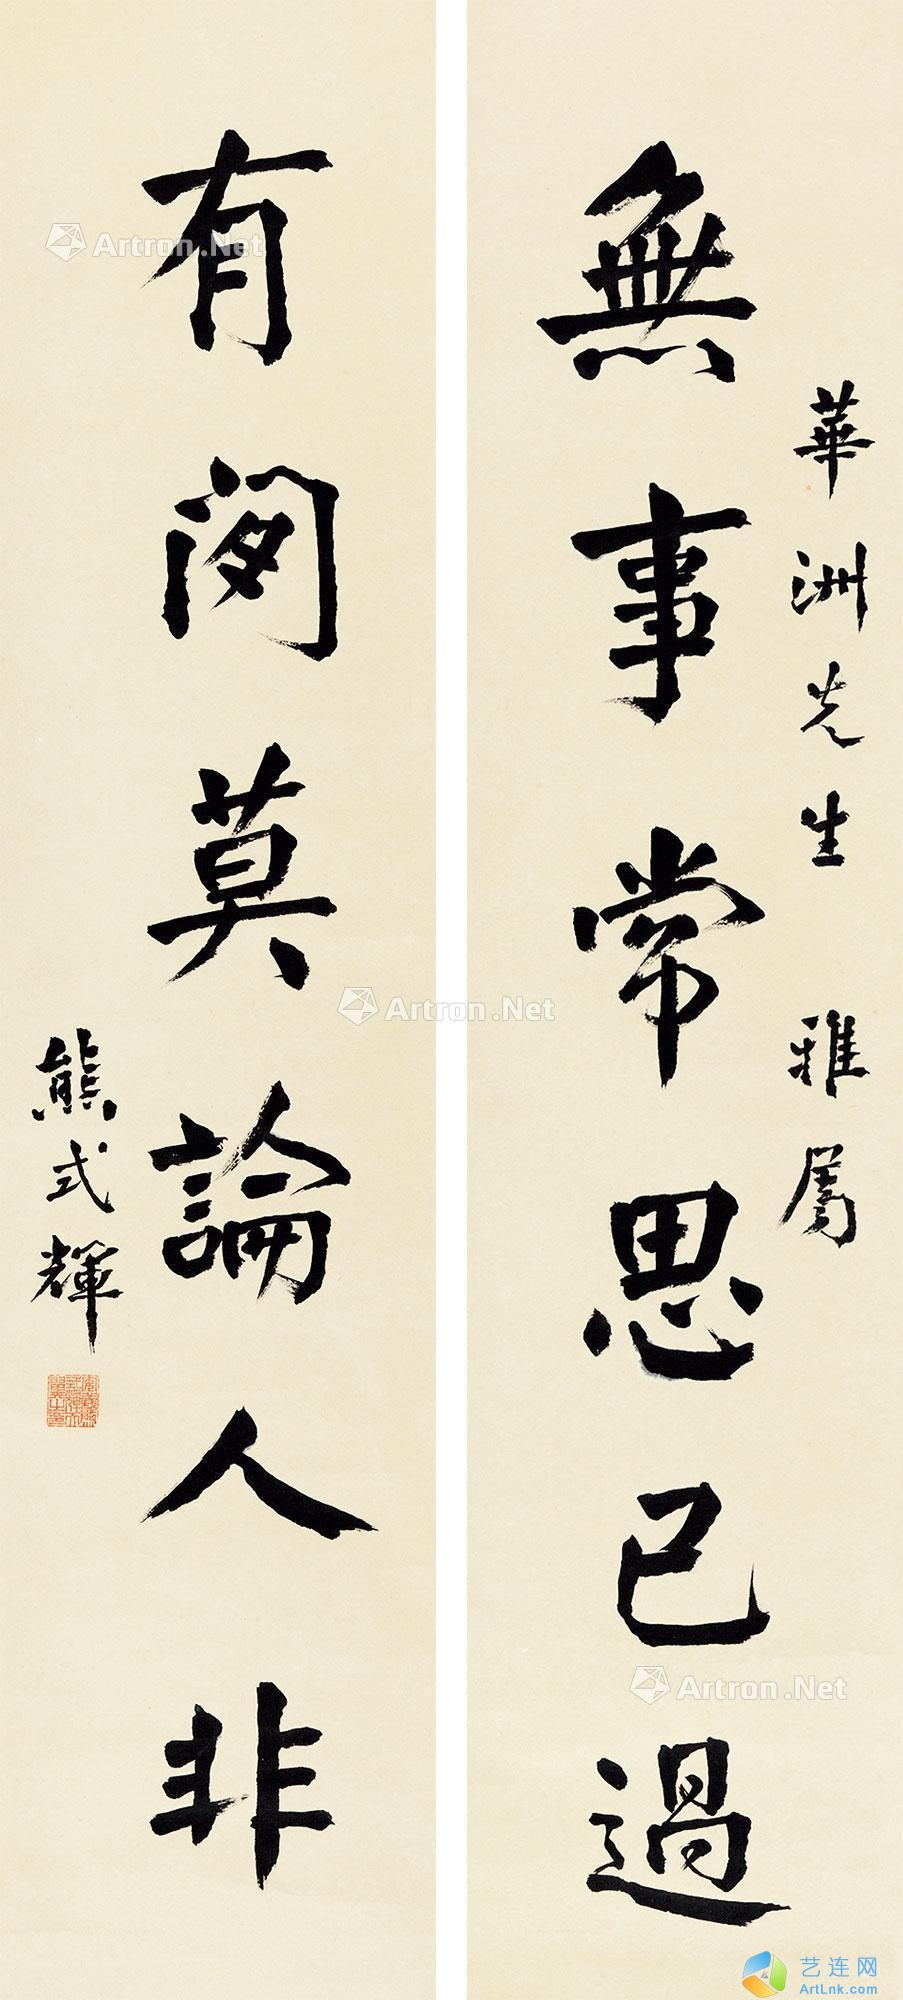 華洲先生 雅屬
無事常思己過
有閒莫論人非
熊式輝
Artron.Net
Artron.Net
Artron.Net
艺连网
ArtLnk.com